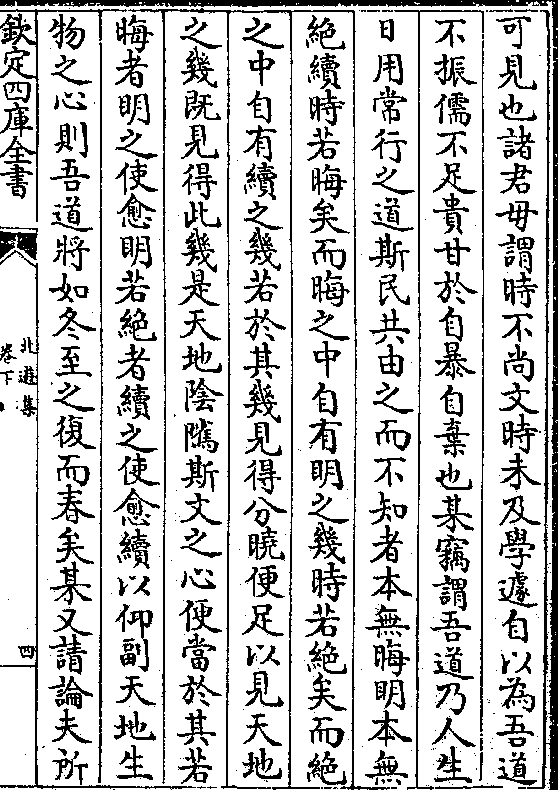 可見也諸君毋謂時不尚文時未及學遽自以為吾道
不振儒不足貴甘於自暴自棄也某竊謂吾道乃人生
日用常行之道斯民共由之而不知者本無晦明本無
絶續時若晦矣而晦之中自有明之幾時若絶矣而絶
之中自有續之幾若於其幾見得分曉便足以見天地
之幾既見得此幾是天地陰隲斯文之心便當於其若
晦者明之使愈明若絶者續之使愈續以仰副天地生
物之心則吾道將如冬至之復而春矣某又請論夫所
欽定四庫全書
北遊集
卷下
四